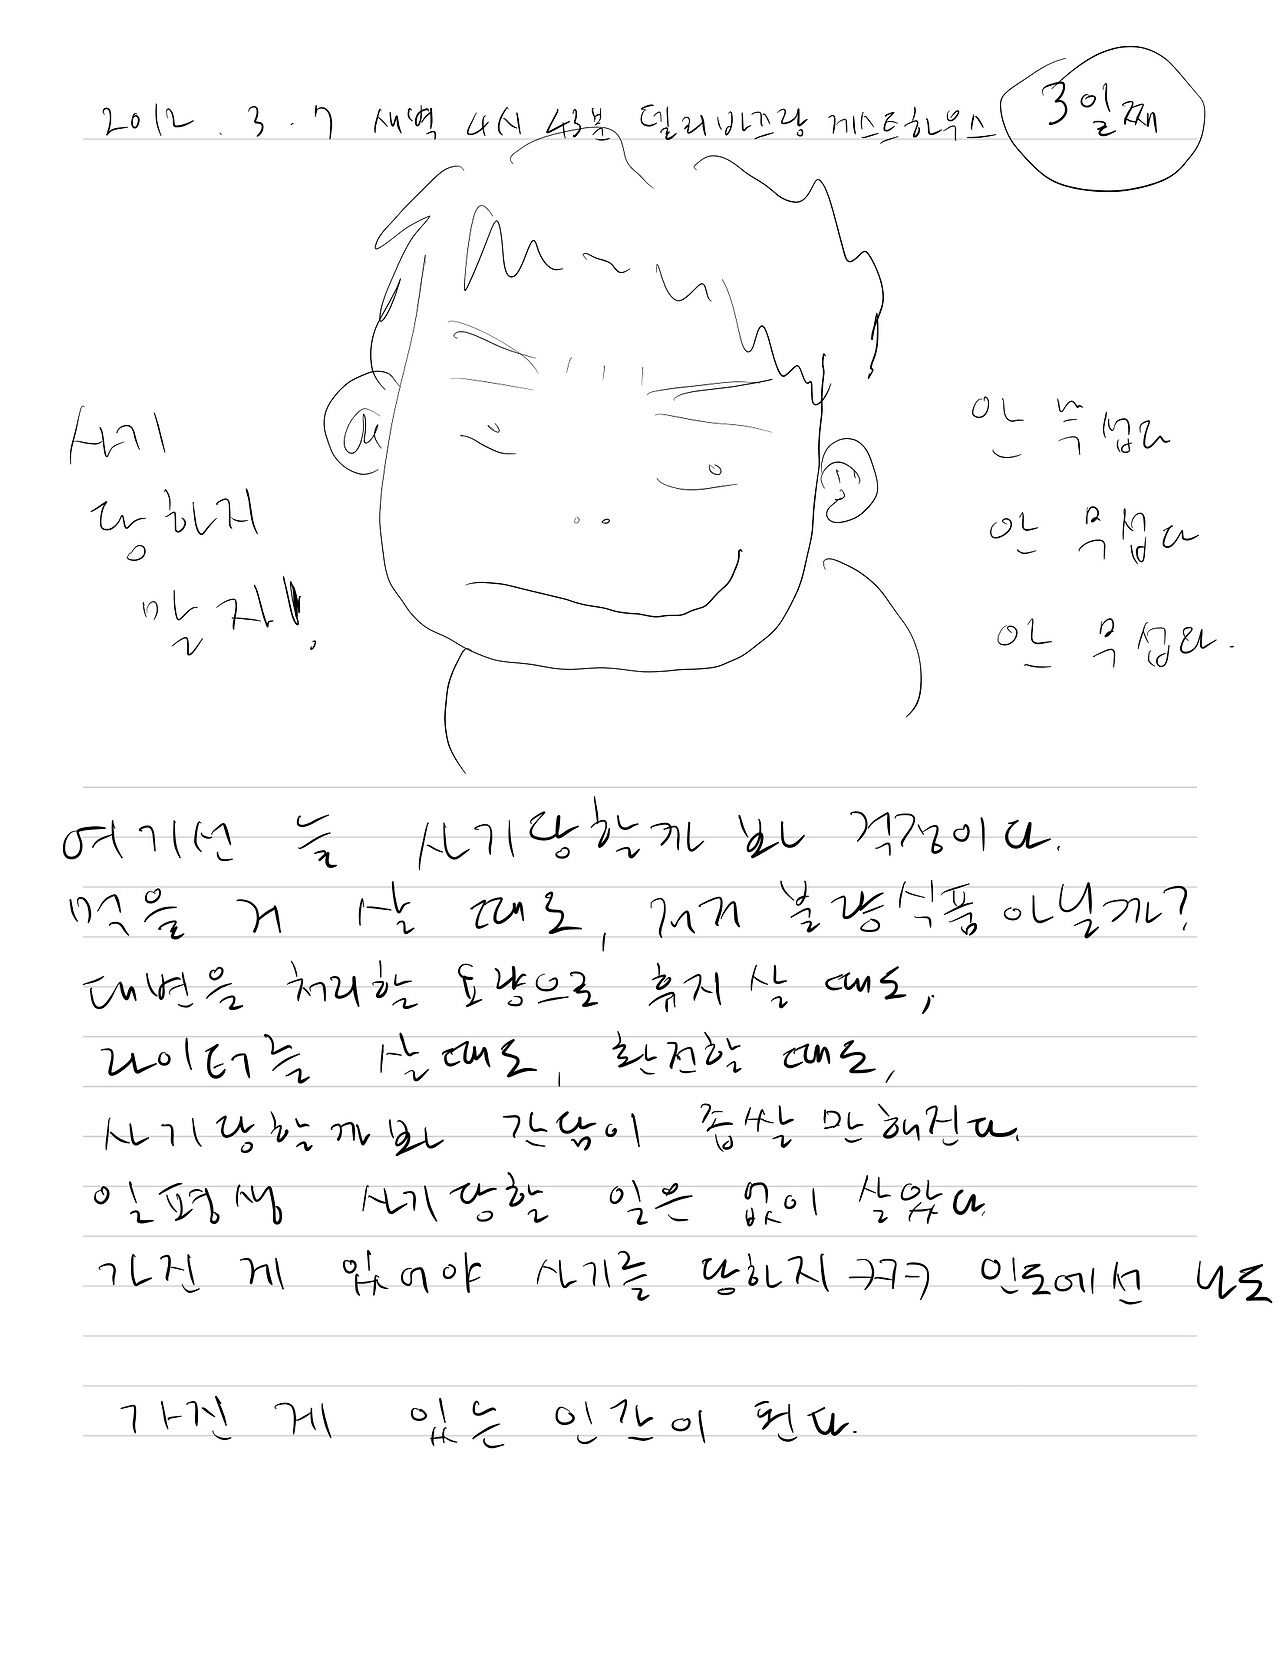 2012. 3. 7 새벽 4시 43분 델리 바즈랑 게스트하우스
3일째
사기
당하지
말자!
안 무섭다
안 무섭다
안 무섭다.
여기선 늘 사기당할까 봐 걱정이다.
먹을 거 살 때도, 저거 불량식품 아닐까?
대변을 처리할 요량으로 휴지 살 때도,
라이터를 살때도, 환전할 때도,
사기당할까봐 간담이 좁쌀 만해진다.
일평생 사기당할 일은 없이 살았다.
가진 게 있어야 사기를 당하지 ㅋㅋㅋ 인도에선 나도
가진 게 있는 인간이 된다.